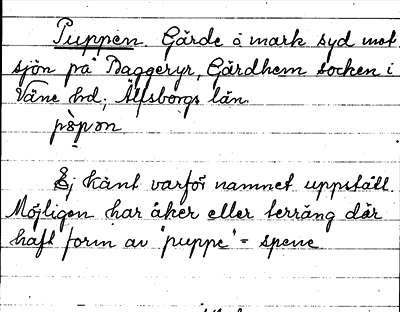 Puppen. Gärde å mark syd mot
sjön på Baggeryr, Gärdhem socken i
Väne hd, Älfsborgs län.
Ej känt varför namnet uppstått.
Möjligen har åker eller terräng där
haft form av "puppe" = spene